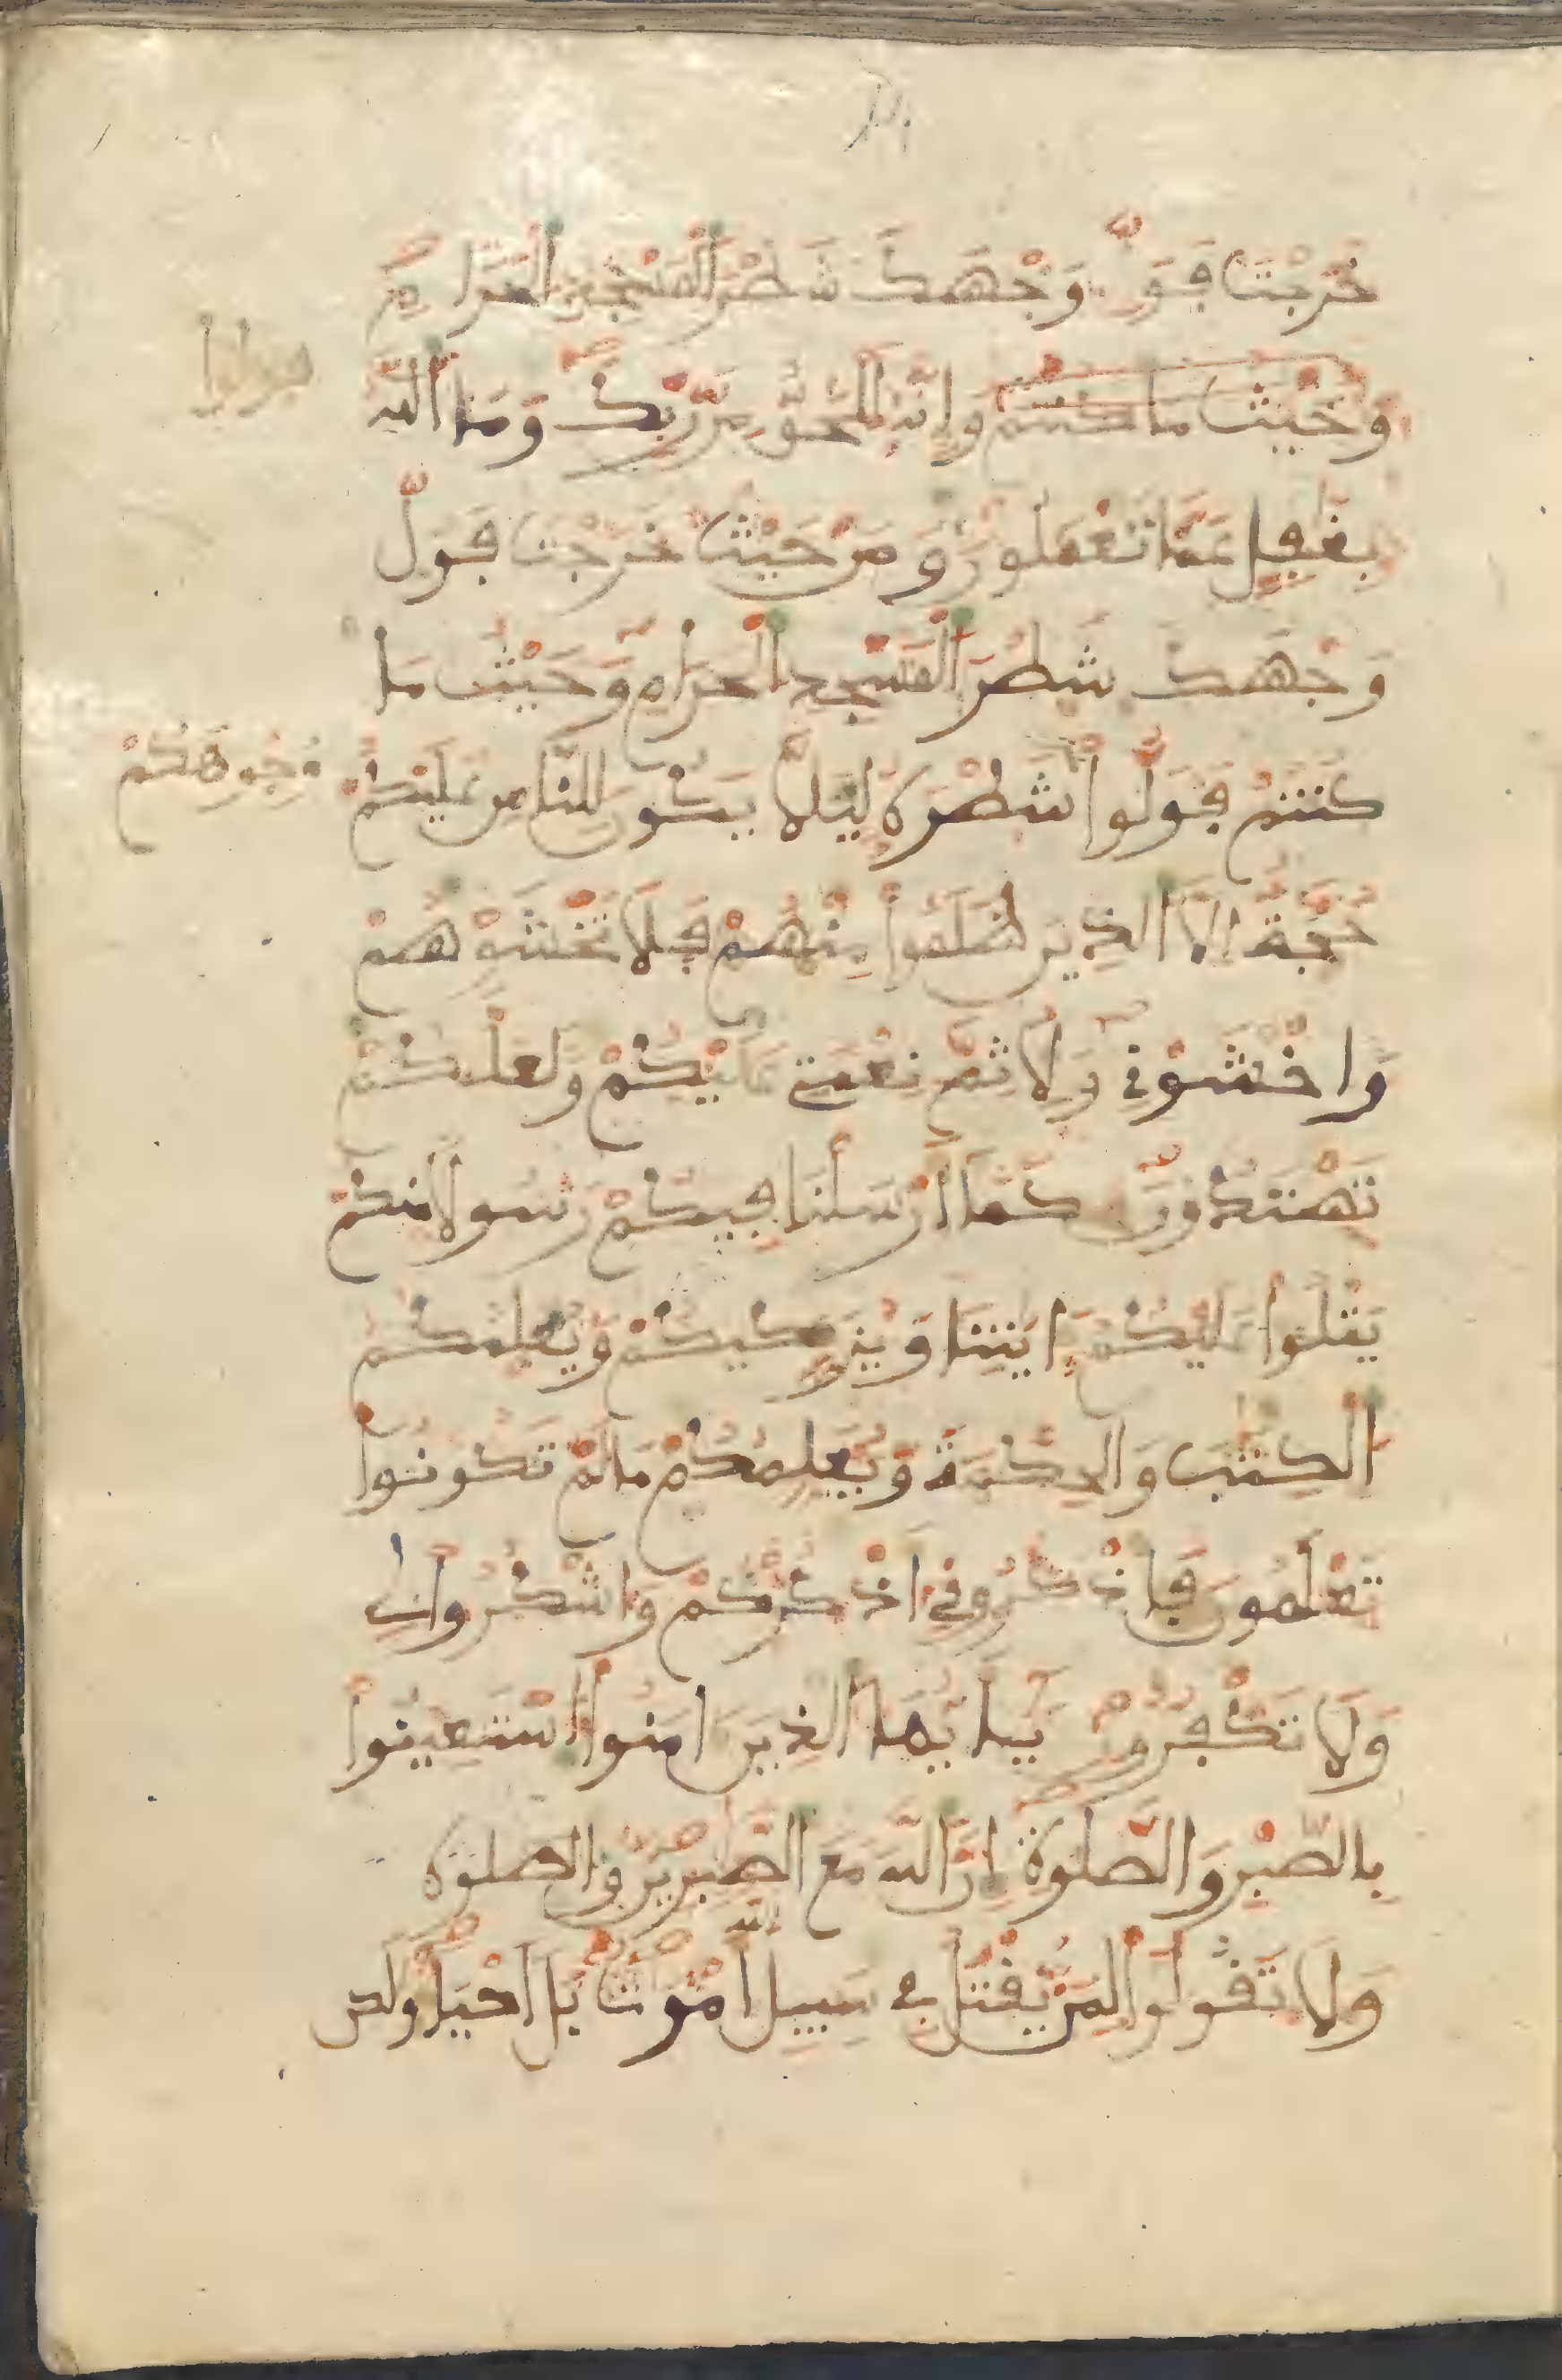 خَرَجْتَ فَوَلِّ وَجْهَكَ شَطْرَ اَ۬لْمَسْجِدِ اِ۬لْحَرَامِ
وَحَيْثُ مَا كُنتُمْ وَإِنَّهُ لَلْحَقُّ مِن رَّبِّكَ وَمَا اَ۬للَّهُ
بِغَٰفِلٍ عَمَّا تَعْمَلُونَ وَمِنْ حَيْثُ خَرَجْتَ فَوَلِّ
وَجْهَكَ شَطْرَ اَ۬لْمَسْجِدِ اِ۬لْحَرَامِ وَحَيْثُ مَا
كُنتُمْ فَوَلُّواْ شَطْرَهُ لِيَلَّا يَكُونَ لِلنَّاسِ عَلَيْكُمْ
وُجُوهَكُمْ
حُجَّةٌ اِلَّا اَ۬لذِينَ ظَلَمُواْ مِنْهُمْ فَلَا تَخْشَوْهُمْ
وَاخْشَوْنِي وَلِأُتِمَّ نِعْمَتِي عَلَيْكُمْ وَلَعَلَّكُمْ
تَهْتَدُونَ كَمَا أَرْسَلْنَا فِيكُمْ رَسُولًا مِّنكُمْ
يَتْلُواْ عَلَيْكُمْ ءَايَٰتِنَا وَيُزَكِّيكُمْ وَيُعَلِّمُكُمُ
اُ۬لْكِتَٰبَ وَالْحِكْمَةَ وَيُعَلِّمُكُم مَّا لَمْ تَكُونُواْ
تَعْلَمُونَ فَاذْكُرُونِي أَذْكُرْكُمْ وَاشْكُرُواْ لِي
وَلَا تَكْفُرُونِ يَٰأَيُّهَا اَ۬لذِينَ ءَامَنُواْ اُ۪سْتَعِينُواْ
بِالصَّبْرِ وَالصَّلَوٰةِ إِنَّ اَ۬للَّهَ مَعَ اَ۬لصَّٰبِرِينَ والصلوة
وَلَا تَقُولُواْ لِمَنْ يُّقْتَلُ فِي سَبِيلِ اِ۬للَّهِ أَمْوَٰتٌ بَلَ اَحْيَآءٌ وَلَٰكِن